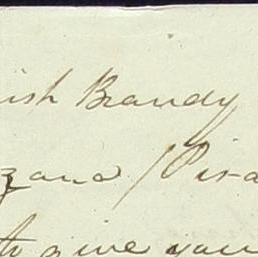 ish Brandy
zana / Pisa
to give you